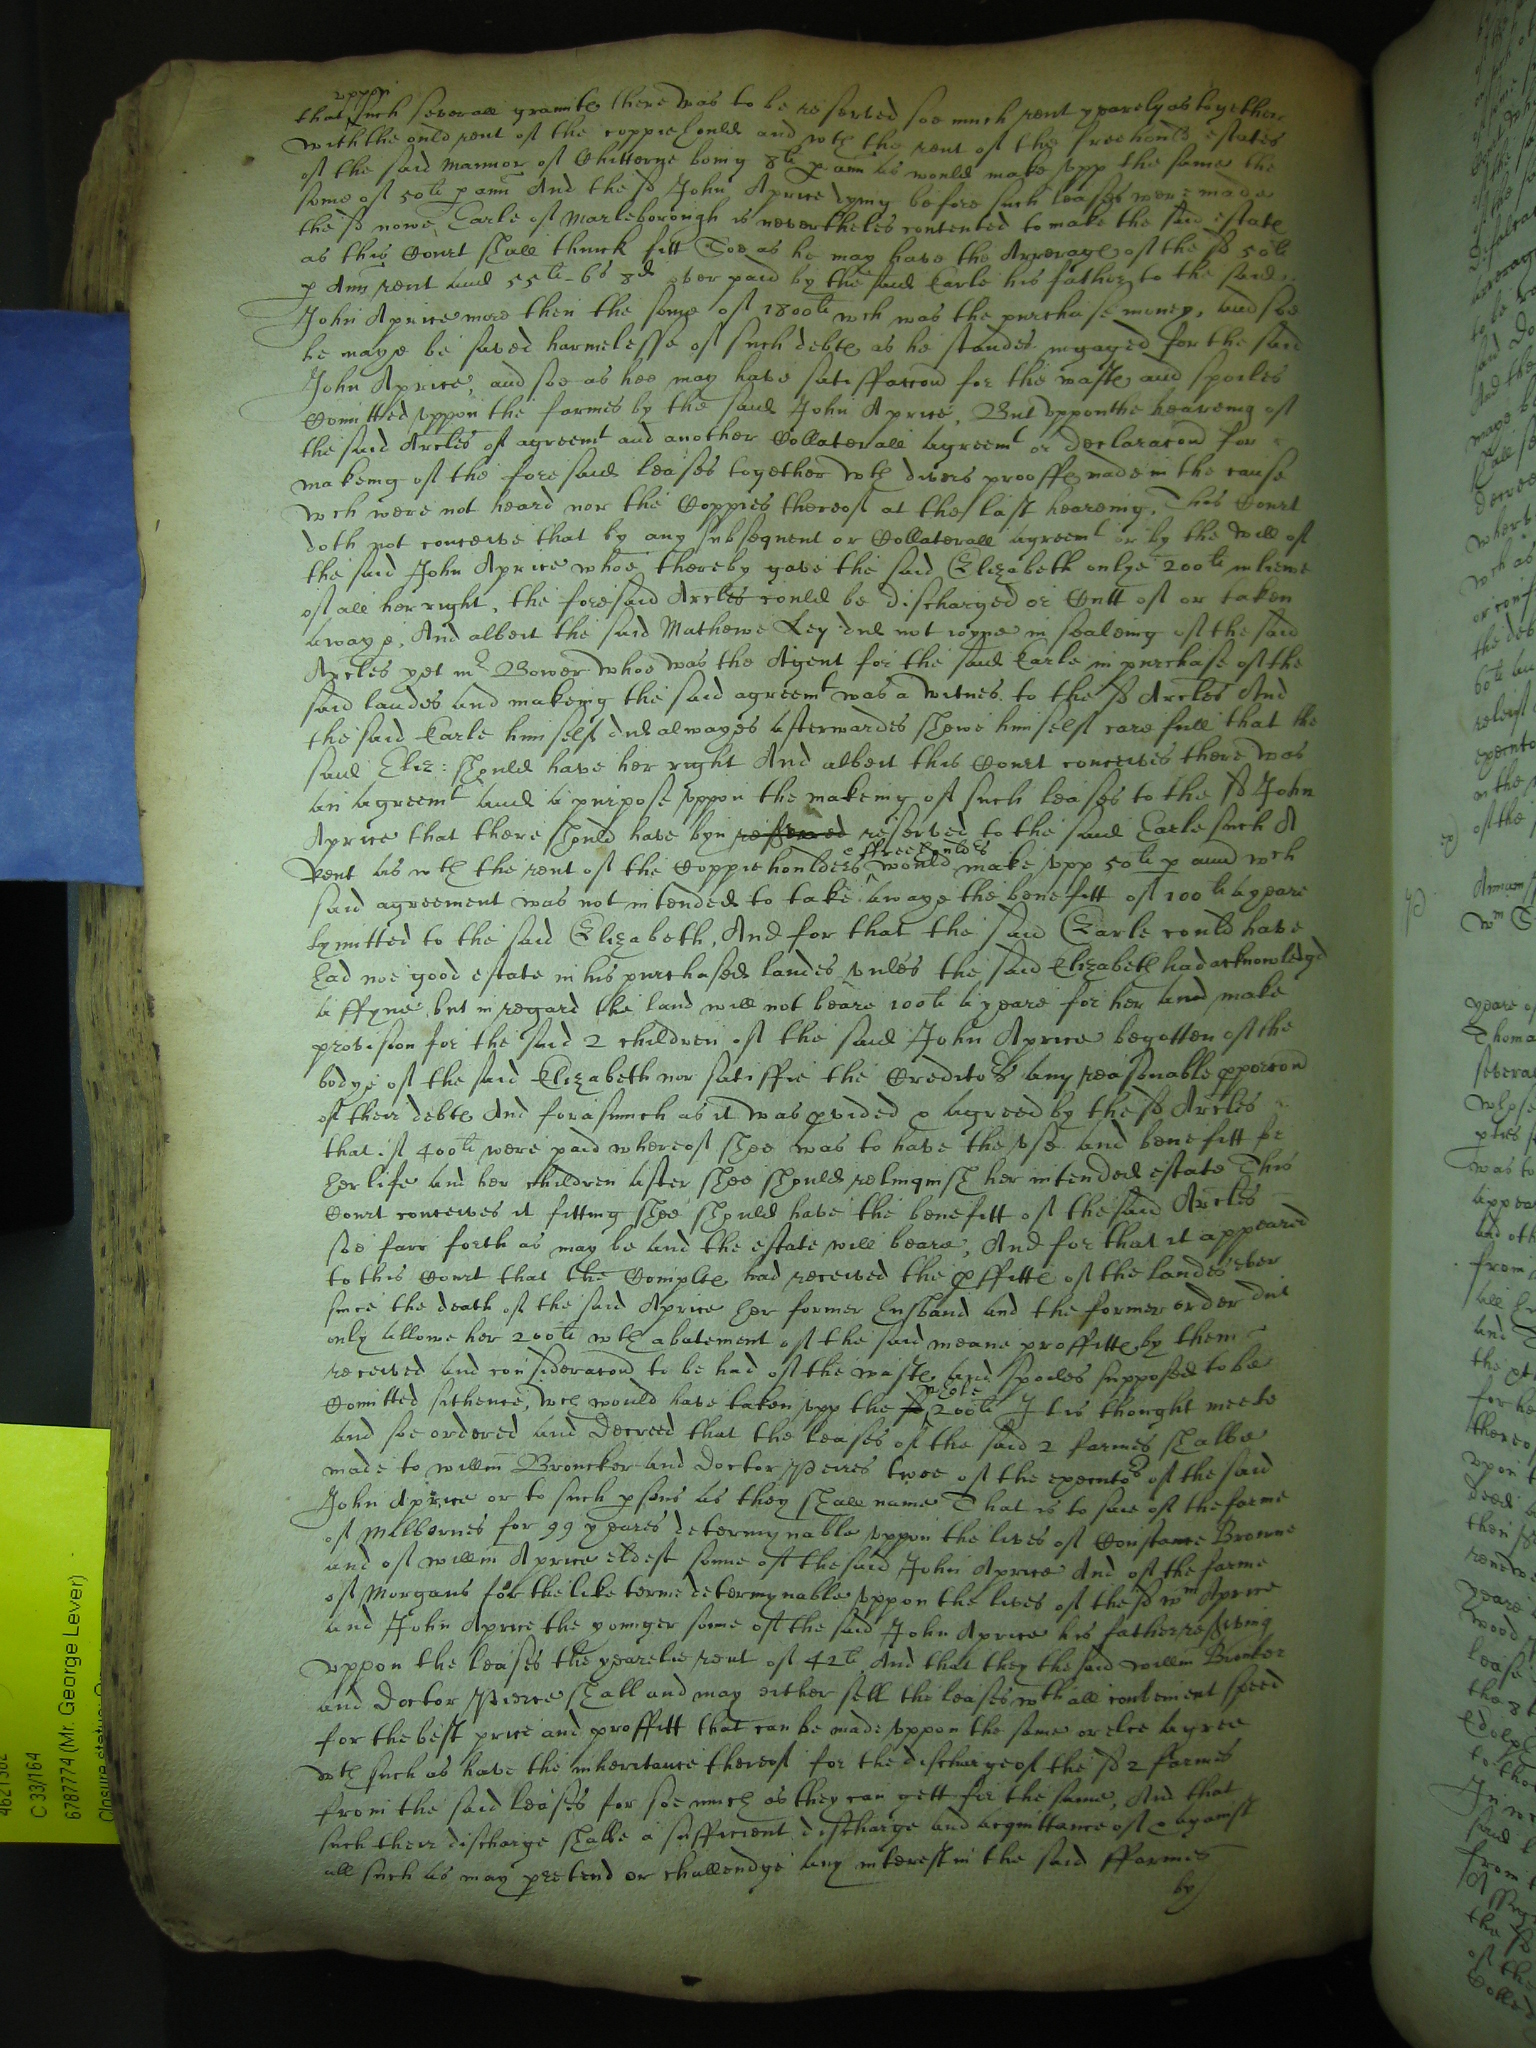 that uppon such severall graunte there was to be reserved soe much rent yearely as together
with the ould rent of the coppiehould and wth the rent of the freehould estates
of the said mannor of Chitterne being 8li p ann as would make upp the same the
some of 50li p ann And the sd John Aprice dying before such leases were made
the sd nowe Earle of Marleborough is nevertheles contented to make the said estate
as this Court shall thinck fitt Soe as he may have the Arrerage of the sd 50li
p Ann rent and 55li 6s 8d over paid by the said Earle his father to the said
John Aprice more then the some of 1800li wch was the purchase money, and soe
he maye be saved harmelesse of such debte as he standes ingaged for the said
John Aprice, and soe as hee may have satisfaccon for the waste and spoiles
Comitted uppon the farmes by the said John Aprice, But uppon the heareing of
the said Arcles of agreemt and another Collaterall agreemt or declaracon for
makeing of the foresaid leases together wth divers prooffe made in the cause
wch were not heard nor the Coppies thereof at the last heareing, This Court
doth not conceive that by any subsequent or Collaterall agreemt or by the will of
the said John Aprice whoe thereby gave the said Elizabeth onlye 200li in liewe
of all her right, the foresaid Arcles could be discharged or Cutt of or taken
awaye, And albeit the said Mathewe Ley did not ioyne in sealeing of the said
Arcles yet mr Bower whoe was the Agent for the said Earle in purchase of the
said landes and makeing the said agreemt was a witnes to the sd Arcles And
the said Earle himself did alwayes afterwardes shewe himself carefull that the
said Eliz: should have her right And albeit this Court conceives there was
an agreemt and a purpose uppon the makeing of such leases to the sd John
Aprice that there should have byn reserved to the said Earle such A
Rent as wth the rent of the Coppiehoulders & ffreehoulders would make upp 50li p ann wch
said agreement was not intended to take awaye the benefitt of 100li a yeare
lymitted to the said Elizabeth, And for that the said Earle could have
had noe good estate in his purchased landes unles the said Elizabeth had acknowledgd
a ffyne, but in regard the land will not beare 100li a yeare for her and make
provision for the said 2 children of the said John Aprice begotten of the
bodye of the said Elizabeth nor satisfie the Creditors any reasonable pporcon
of their debte And forasmuch as it was pvided & agreed by the sd Arcles
that if 400li were paid whereof shee was to have the use and benefitt for
her life and her children after shee should relinquish her intended estate This
Court conceives it fitting shee should have the benefitt of the said Arcles
soe farr forth as may be and the estate will beare, And for that it appeared
to this Court that the Complte had received the pffitte of the landes ever
since the death of the said Aprice her former husband and the former order did
only allowe her 200li wth abatement of the said meane proffitte by them
received and consideracon to be had of the waste and spoiles supposed to be
Comitted sithence, wch would have taken upp the whole 200li It is thought meete
and soe ordered and Decreed that the leases of the said 2 farmes shalbe
made to willm Broncker and Doctor Peirs twoe of the executors of the said
John Aprice or to such psons as they shall name That is to saie of the farme
of Melbornes for 99 yeares determynable uppon the lives of Constance Browne
and of willm Aprice eldest sonne of the said John Aprice And of the farme
of Morgans for the like terme determynable uppon the lives of the sd wm Aprice
and John Aprice the younger sonne of the said John Aprice his father reserving
uppon the leases the yearelie rent of 42li, And that they the said willm Broncker
and Doctor Pierce shall and may either sell the leases wth all convenient speed
for the best price and proffitt that can be made uppon the same or else agree
wth such as have the inheritance thereof for the discharge of the sd 2 farmes
from the said leases for soe much as they can gett for the same, And that
such their discharge shalbe a sufficient discharge and acquittance of & against
all such as may pretend or challendge any interest in the said ffarmes
by
C 33/164
6787774 (Mr. George Lever)